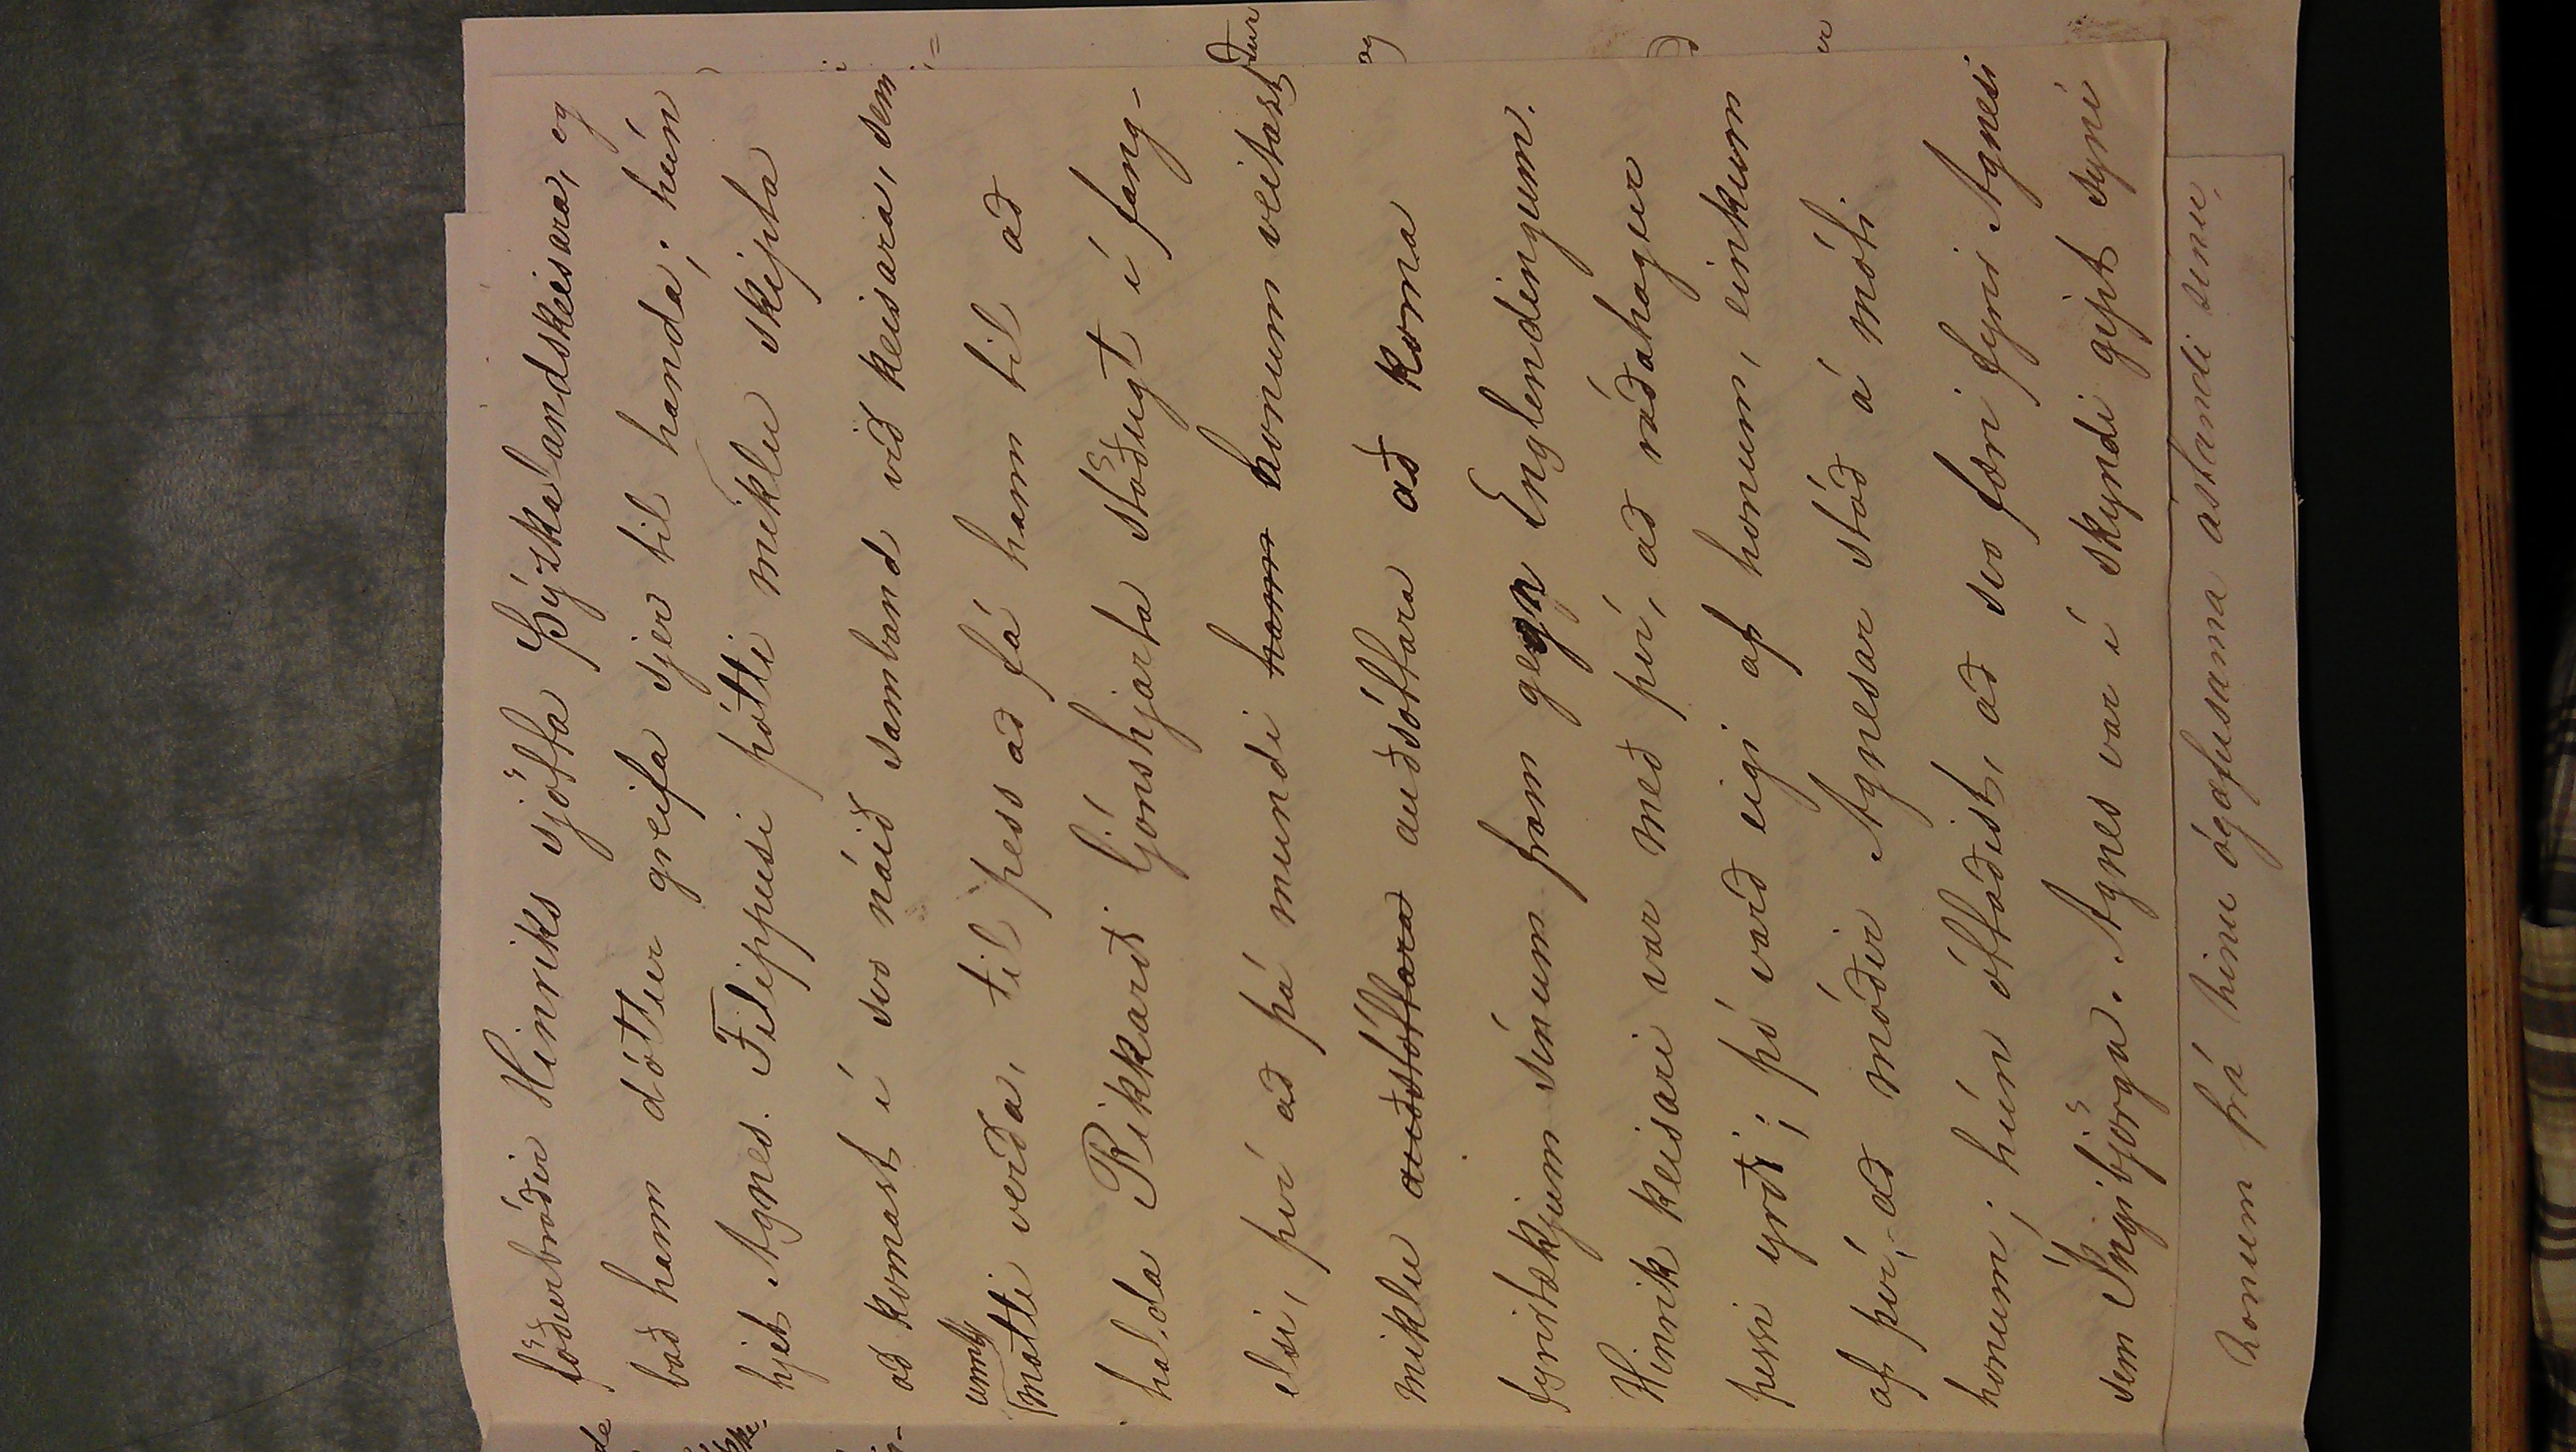 föðurbróðir Hinriks sjötta Þýzkalandskeisara, og
bað hann dóttur greifa sjer til handa; hún
hjet Agnes. Filippusi þótti miklu skipta
að komast í svo náið samband við keisara, sem
unnt
mátti verða, til þess að fá hann til að
halda Rikkarði Ljónshjarta stöðugt í fang-
elsi, því að þá mundi hann honum veitast
miklu auðstóttara auðsóttara að koma
fyrirtækjum sínum fram gegn Englendingum.
Hinrik keisari var með því, að ráðahagur
þessi yrði; þó varð eigi af honum, einkum
af því, að móðir Agnesar stóð á móti
honum; hún óttaðist, að svo færi fyrir Agnesi
sem Ingibjörgu. Agnes var í skyndi gipt syni
honum frá hinu ógæfusama ástandi sínu,